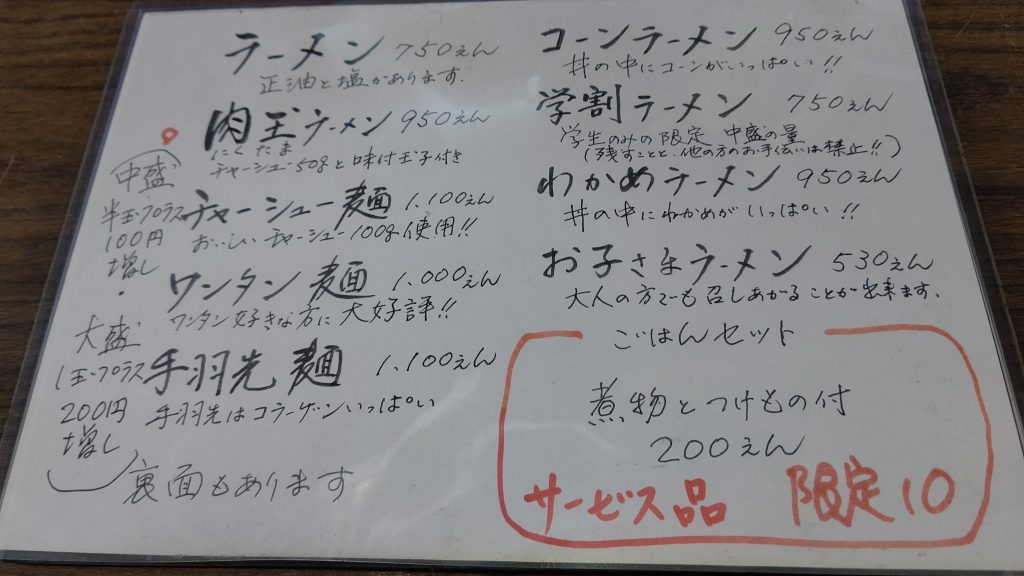 ラーメン 750えん
正油と塩があります.
肉玉ラーメン 950えん
にくたま
チャーシュー50gと味付玉子付き
チャーシュー麺 1,100えん
おいしいチャーシュー100g使用!!
ワンタン麺 1.000えん
ワンタン好きな方に大好評!!
手羽先麺 1.100えん
手羽先はコラーゲンいっぱい
中盛
半玉プラス
100円
増し
・
大盛
1玉プラス
200円
増し
裏面もあります
コーンラーメン 950えん
丼の中にコーンがいっぱい!!
学割ラーメン 750えん
学生のみの限定 中盛の量
(残すことと、他の方のお手伝いは禁止!!)
わかめラーメン 950えん
丼の中にわかめがいっぱい!!
お子さまラーメン 530えん
大人の方でも召しあがることが出来ます.
ごはんセット
煮物とつけもの付
200えん
サービス品 限定10